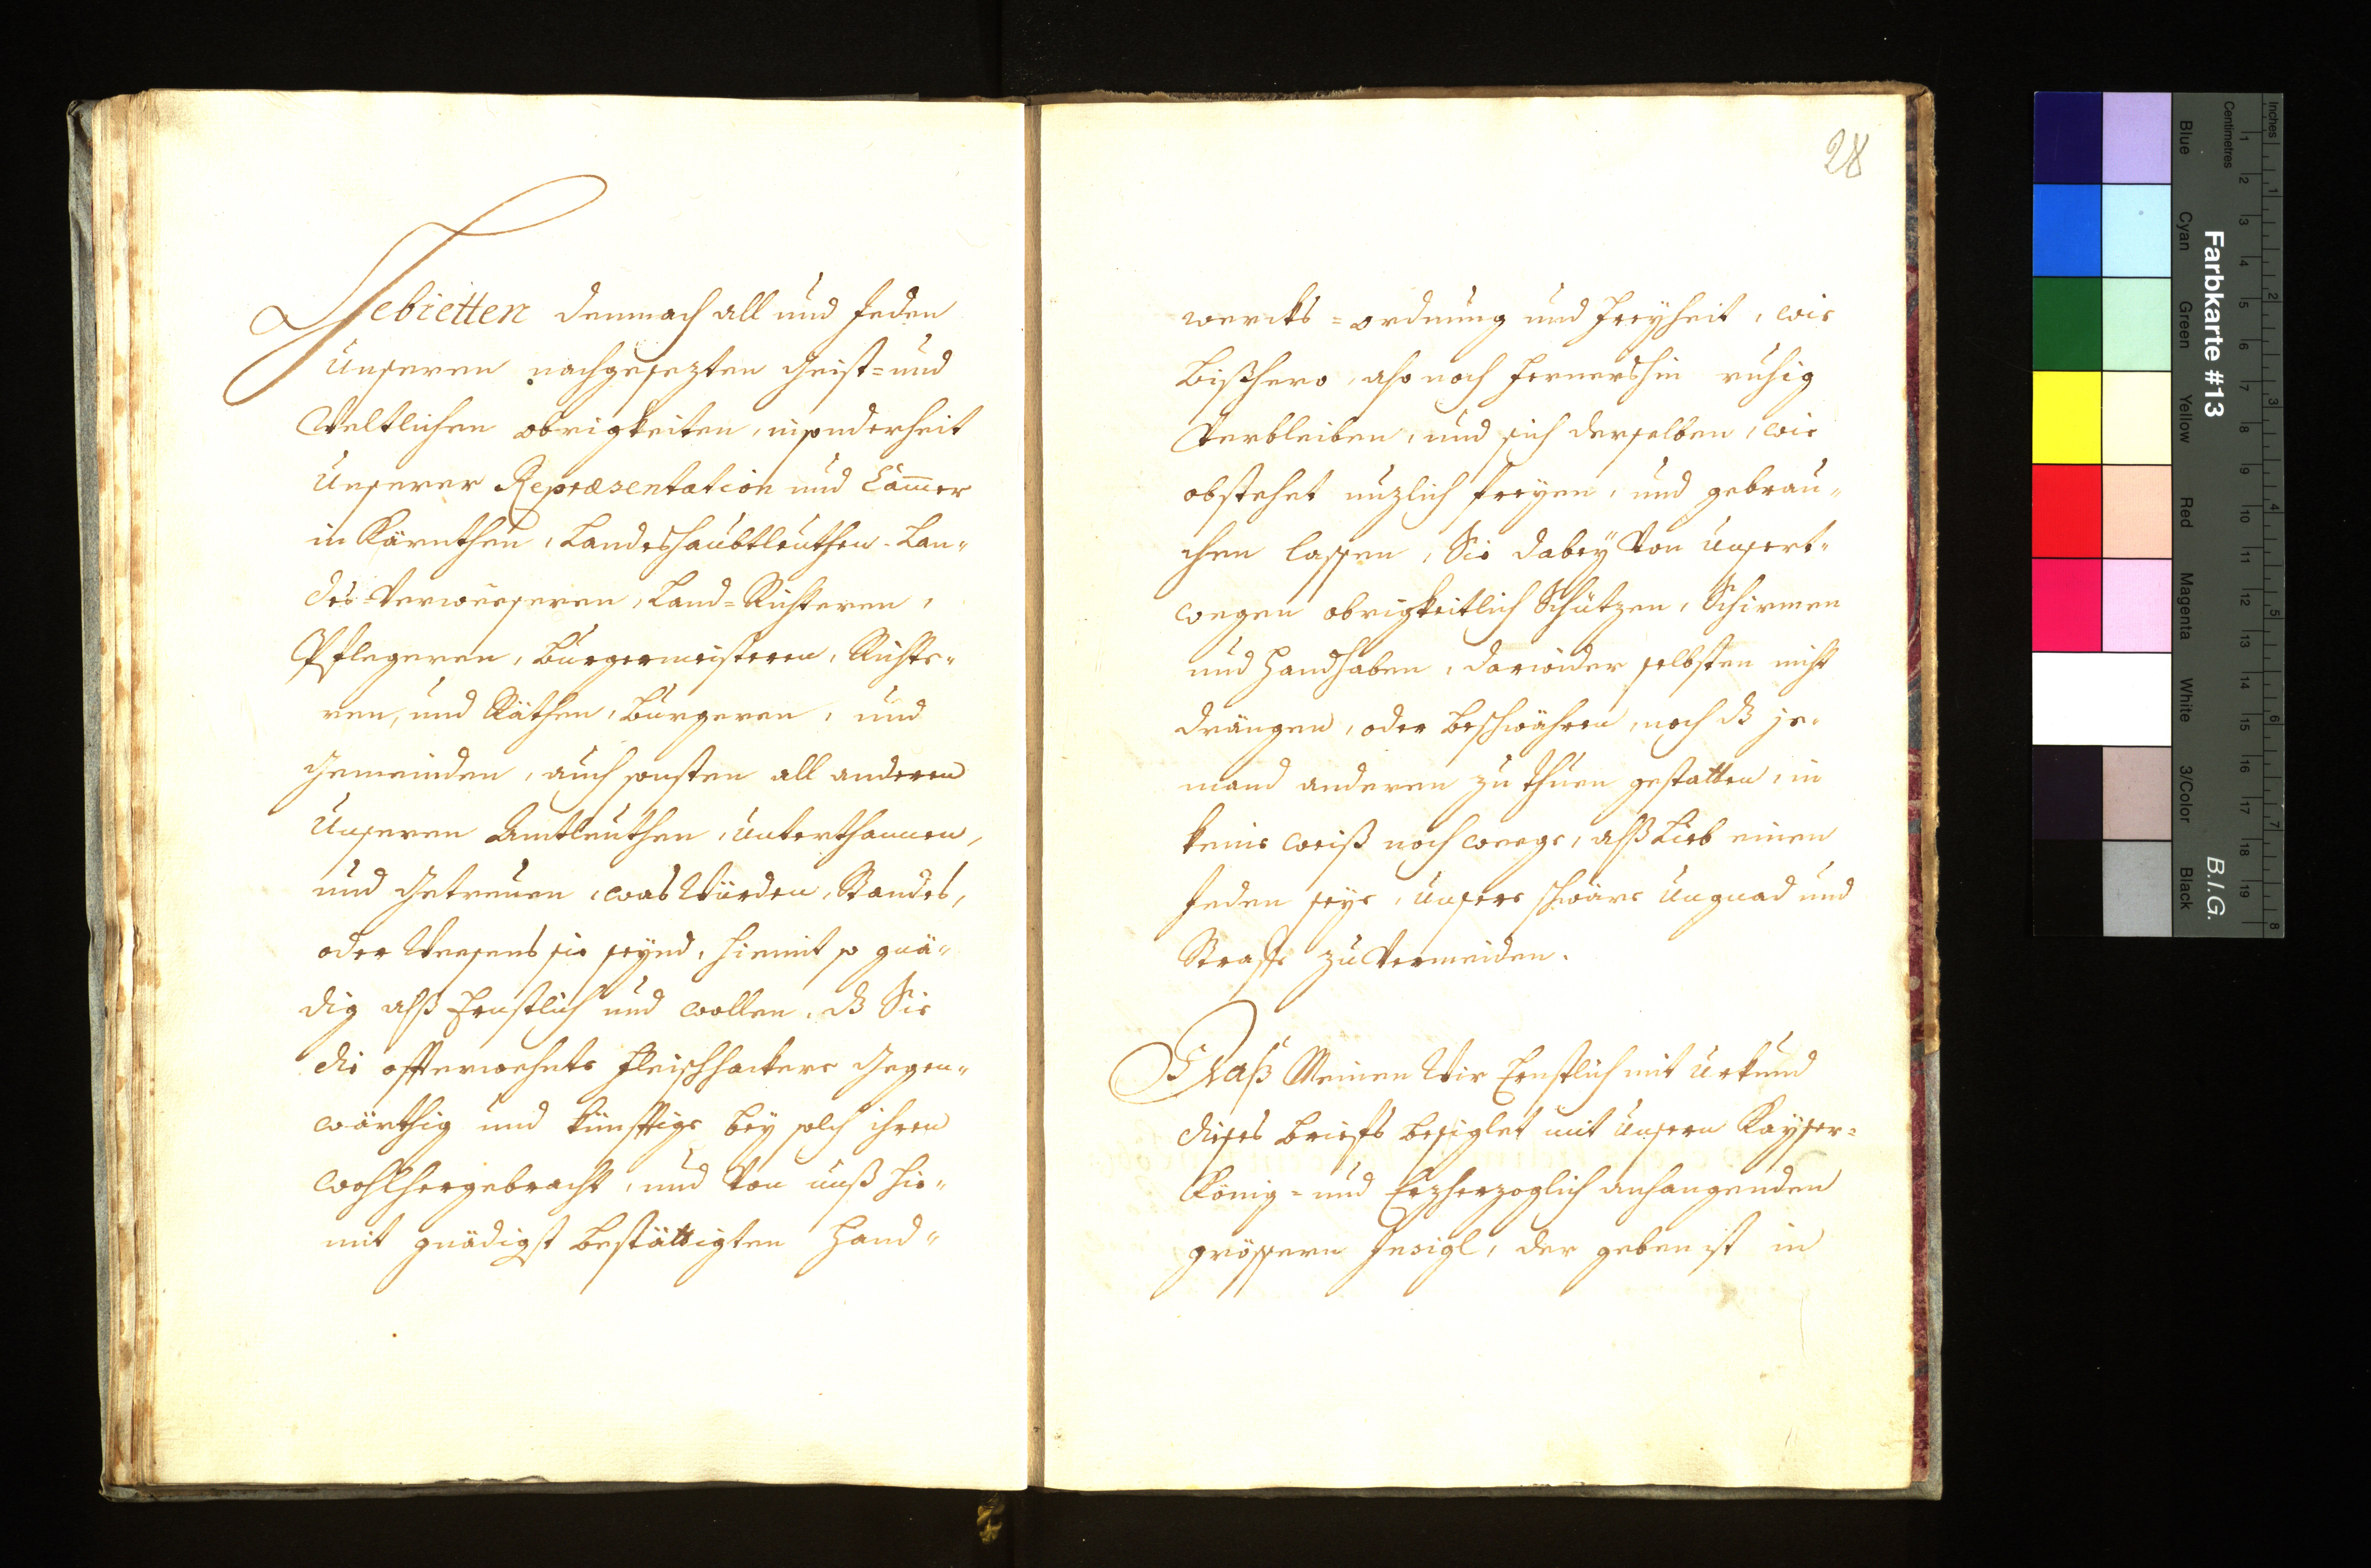 Gebietten demnach all und Jeden
Unseren nachgesezten Geist= und
Weltlichen obrigkeiten, insonderheit
Unserer Repræsentation und Cam̄er
in Kärnthen, Landeshaubtleuthen, Lan„
des-Verweeseren, Land=Richteren,
Pflegeren, Burgermeisteren, Richte„
ren, und Räthen, Burgeren, und
Gemeinden, auch sonsten all anderen
Unseren Ambtleuthen, Unterthannen,
und Getreuen, was Würden, Standes,
oder Weesens sie seynd, hiemit so gnä„
dig alß Ernstlich und wollen, dß Sie
die offterwehnte Fleischhackere Gegen„
wärthig und künfftige bey solch ihren
wohlhergebracht, und Von unß hie„
mit gnädigst bestättigten Hand„
28
wercks=ordnung und Freyheit, wie
bißhero, also noch fernershin ruhig
Verbleiben, und sich derselben, wie
obstehet nuzlich freyen, und gebrau„
chen lassen, Sie dabey Von Unsert„
wegen obrigkeitlich Schützen, Schirmen
und Handhaben, darwider selbsten nicht
drängen, oder beschwähren, noch dß je„
mand anderen zu thuen gestatten, in
keine weiß noch weege, alß Lieb einen
Jeden seye, Unsere schwäre Ungnad und
Straffe zu Vermeiden.
Daß Meinen Wir Ernstlich mit Urkund
dieses brieffs besiglet mit Unsern Kayser=
König= und Erzherzoglich anhangenden
grössern Insigl, der geben ist in
Farbkarte #13
B.I.G.
Inches
1
2
3
4
5
6
7
8
Centimetres
1
2
3
4
5
6
7
8
9
10
11
12
13
14
15
16
17
18
19
Blue
Cyan
Green
Yellow
Red
Magenta
White
3/Color
Black